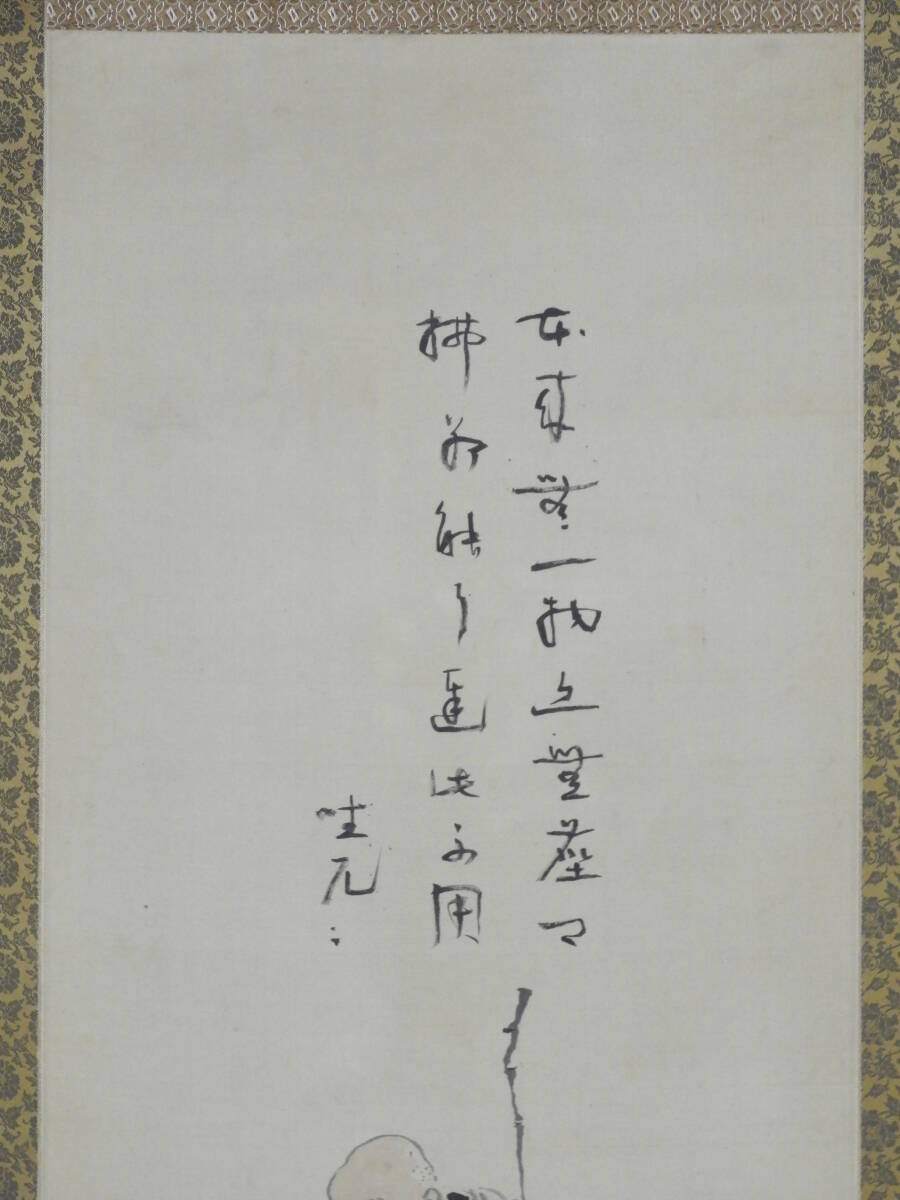 本来無一物亦無塵可
拂若能了達此不用
坐兀〻